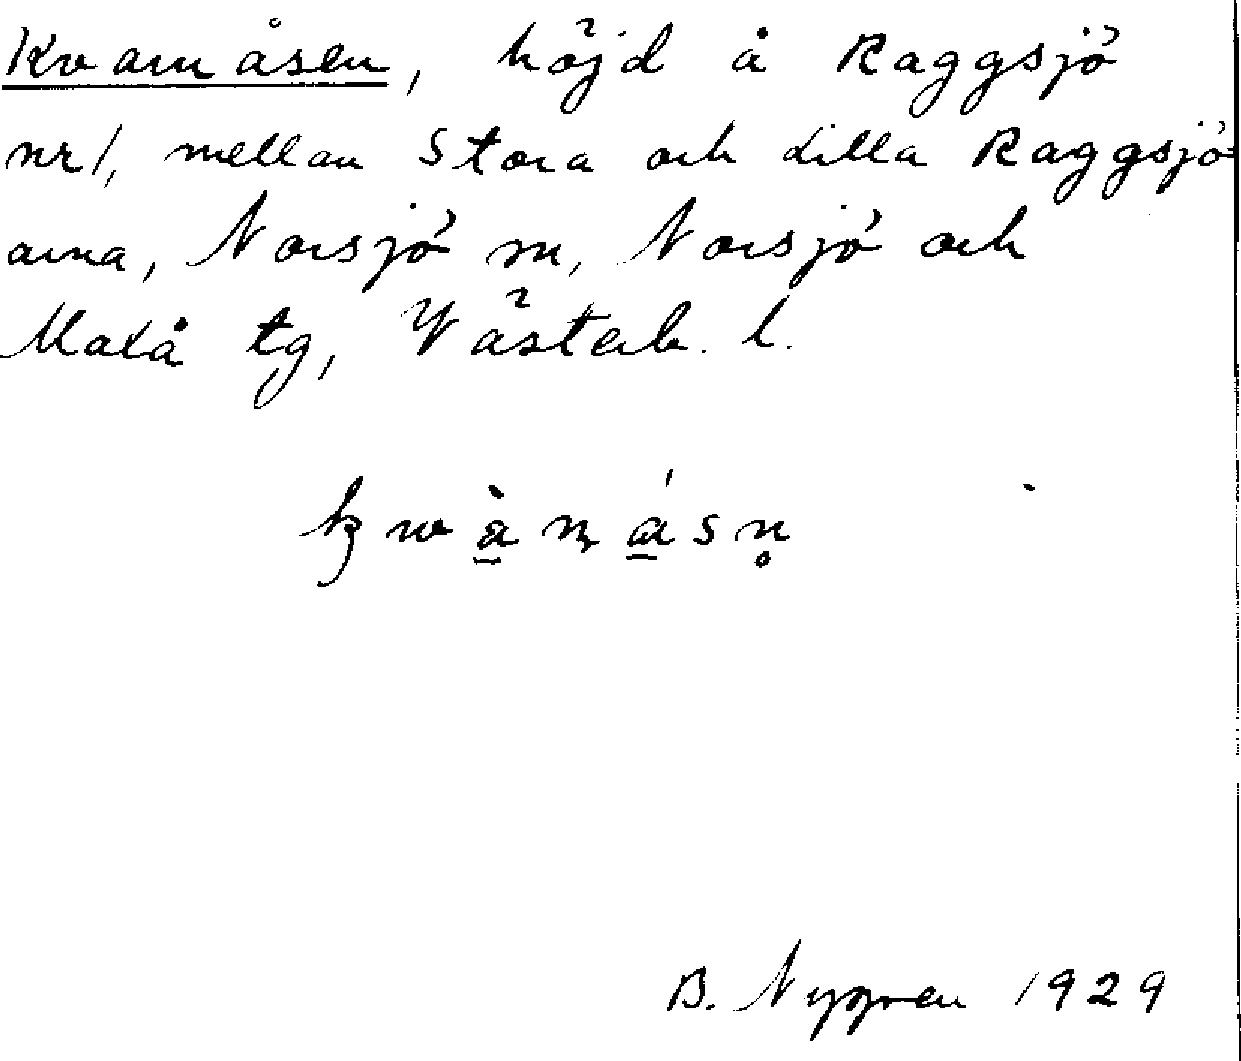 Kvarnåsen, höjd å Raggsjö
nr 1, mellan Stora och Lilla Raggsjö-
arna, Norsjö sn, Norsjö och
Malå tg, Västerb. l.
B. Nygren 1929